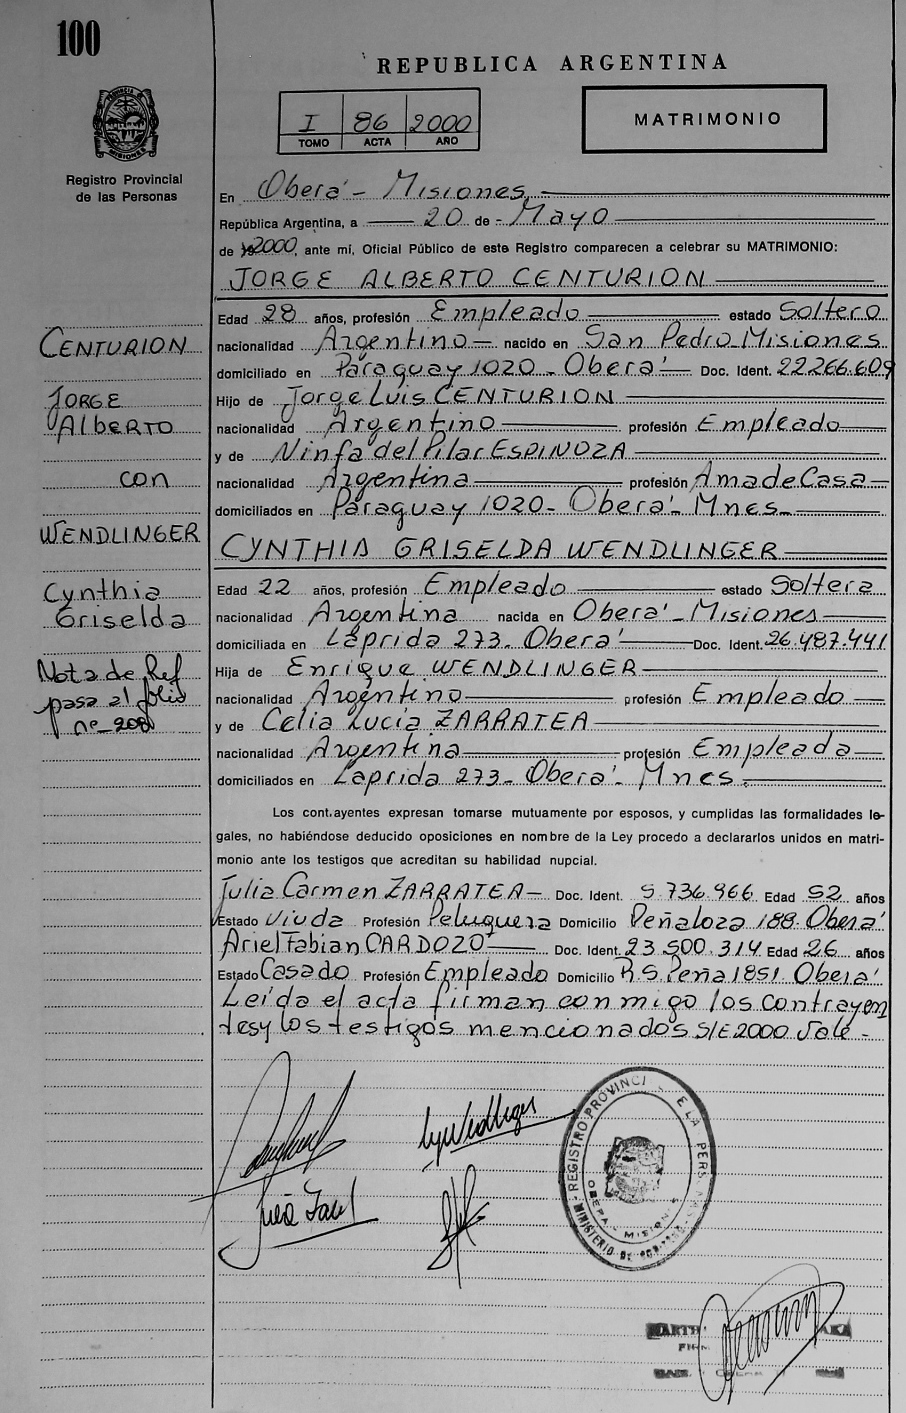 100
REPUBLICA ARGENTINA
I 86 2000
TOMO ACTA AÑO
MATRIMONIO
PROVINCIA DE MISIONES
Registro Provincial
de las Personas
En Oberá - Misiones,
República Argentina, a 20 de Mayo
de 2000, ante mí, Oficial Público de este Registro comparecen a celebrar su MATRIMONIO:
JORGE ALBERTO CENTURION
Edad 28 años, profesión Empleado estado Soltero
nacionalidad Argentino nacido en San Pedro-Misiones
domiciliado en Paraguay 1020 - Oberá Doc. Ident. 22.266.609
Hijo de Jorge Luis CENTURION
nacionalidad Argentino profesión Empleado
y de Ninfa del Pilar ESPINOZA
nacionalidad Argentina profesión Ama de Casa
domiciliados en Paraguay 1020 - Oberá - Mnes
CYNTHIA GRISELDA WENDLINGER
Edad 22 años, profesión Empleado estado Soltera
nacionalidad Argentina nacida en Oberá - Misiones
domiciliada en Laprida 273 - Oberá Doc. Ident. 26.487.441
Hija de Enrique WENDLINGER
nacionalidad Argentino profesión Empleado
y de Celia Lucía ZARRATEA
nacionalidad Argentina profesión Empleada
domiciliados en Laprida 273 - Oberá - Mnes
Los contrayentes expresan tomarse mutuamente por esposos, y cumplidas las formalidades le-
gales, no habiéndose deducido oposiciones en nombre de la Ley procedo a declararlos unidos en matri-
monio ante los testigos que acreditan su habilidad nupcial.
Julia Carmen ZARRATEA Doc. Ident. 5.736.966 Edad 52 años
Estado Viuda Profesión Peluquera Domicilio Peñaloza 188 - Oberá
Ariel Fabian CARDOZO Doc. Ident. 23.500.314 Edad 26 años
Estado Casado Profesión Empleado Domicilio R.S. Peña 1851 Oberá
Leída el acta firman, conmigo los contrayen
tes y los testigos mencionados S/E 2000 Vale -
CENTURION
JORGE
Alberto
con
WENDLINGER
Cynthia
Griselda
Nota de Ref
pasa al folio
nº 200
REGISTRO PROVINCI E LA PERS
OBERA - MISIONES
MINISTERIO DE